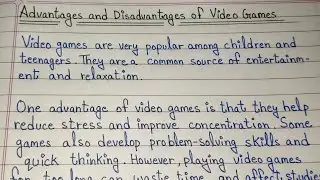 Advantages and Disadvantages of Video Games
Video games are very popular among children and
teenagers. They are a common source of entertainm-
ent and relaxation.
One advantage of video games is that they help
reduce stress and improve concentration. Some
games also develop problem-solving skills and
quick thinking. However, playing video games
for too long can waste time and affect studies